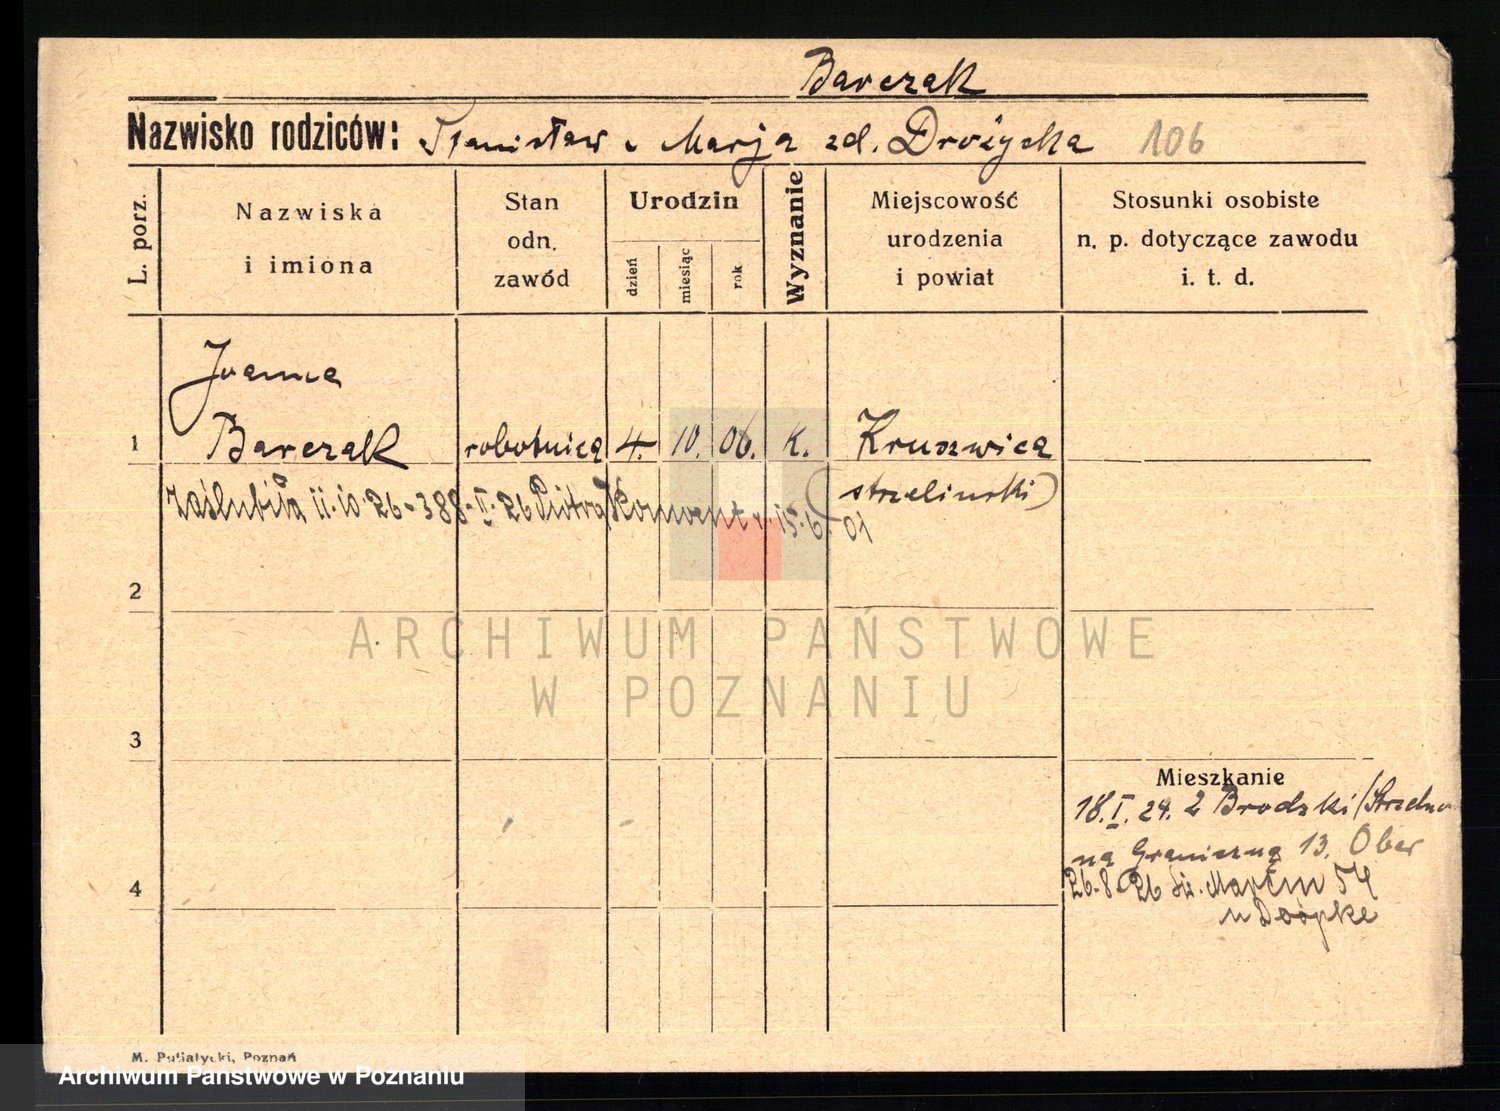 Barczak
Nazwisko rodziców: Stanisław i Marja zd. Drożycka 106
L. porz.
Nazwiska
i imiona
Stan
odn.
zawód
Urodzin
dzień
miesiąc
rok
Wyznanie
Miejscowość
urodzenia
i powiat
Stosunki osobiste
n. p. dotyczące zawodu
i. t. d.
Joanna
1 Barczak robotnica 4. 10. 06. k. Kruszwica
(strzeliński)
Zaślubiła 11·10·26-388-II·26 Piotra 15·6·01
2
3
4
Mieszkanie
18.I.24. z Brodzki/Strzelno
na Graniczną 13. Ober
26·8·26 Św. Marcin 54
u Doopke
M. Pujiatycki, Poznań
ARCHIWUM PAŃSTWOWE
W POZNANIU
Archiwum Państwowe w Poznaniu